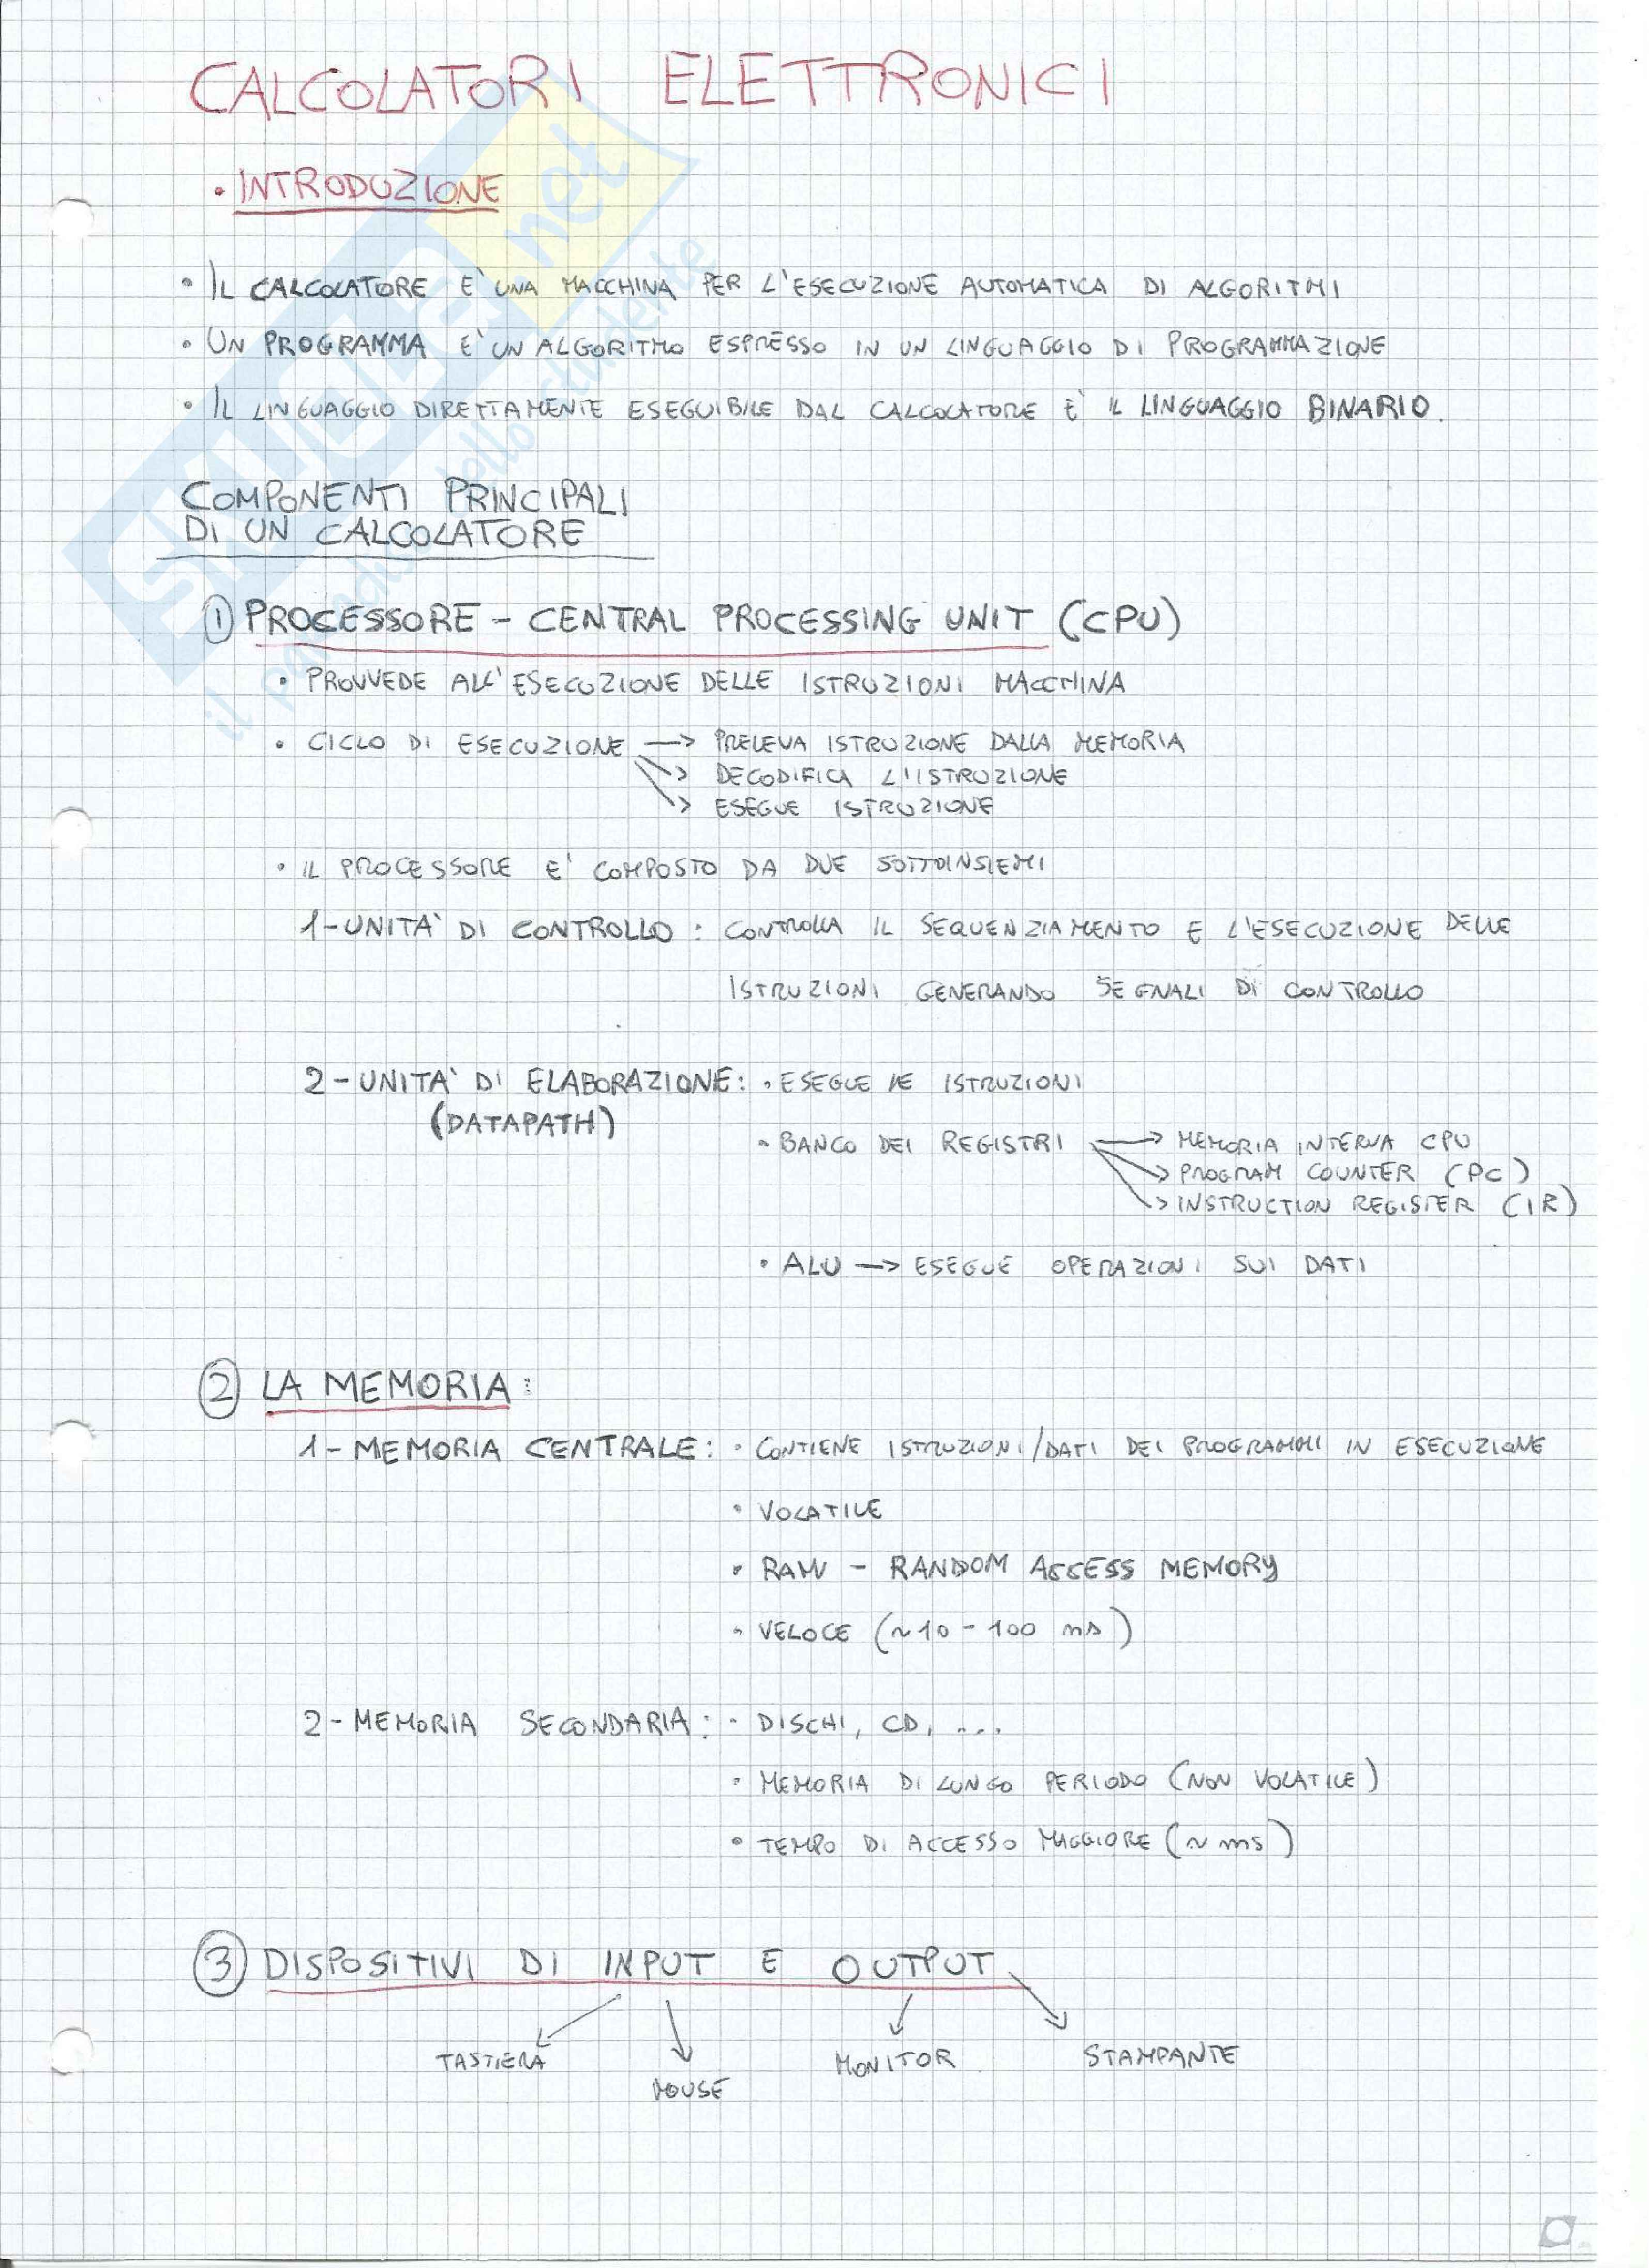 CALCOLATORI ELETTRONICI
• INTRODUZIONE
• IL CALCOLATORE E' UNA MACCHINA PER L'ESECUZIONE AUTOMATICA DI ALGORITMI
• UN PROGRAMMA E' UN ALGORITMO ESPRESSO IN UN LINGUAGGIO DI PROGRAMMAZIONE
• IL LINGUAGGIO DIRETTAMENTE ESEGUIBILE DAL CALCOLATORE E' IL LINGUAGGIO BINARIO.
COMPONENTI PRINCIPALI
DI UN CALCOLATORE
① PROCESSORE - CENTRAL PROCESSING UNIT (CPU)
• PROVVEDE ALL'ESECUZIONE DELLE ISTRUZIONI MACCHINA
• CICLO DI ESECUZIONE → PRELEVA ISTRUZIONE DALLA MEMORIA
→ DECODIFICA L'ISTRUZIONE
→ ESEGUE ISTRUZIONE
• IL PROCESSORE E' COMPOSTO DA DUE SOTTOINSIEMI
1-UNITA' DI CONTROLLO: CONTROLLA IL SEQUENZIAMENTO E L'ESECUZIONE DELLE
ISTRUZIONI GENERANDO SEGNALI DI CONTROLLO
2-UNITA' DI ELABORAZIONE: • ESEGUE LE ISTRUZIONI
(DATAPATH)
• BANCO DEI REGISTRI → MEMORIA INTERNA CPU
→ PROGRAM COUNTER (PC)
→ INSTRUCTION REGISTER (IR)
• ALU → ESEGUE OPERAZIONI SUI DATI
② LA MEMORIA:
1-MEMORIA CENTRALE: • CONTIENE ISTRUZIONI/DATI DEI PROGRAMMI IN ESECUZIONE
• VOLATILE
• RAM - RANDOM ACCESS MEMORY
• VELOCE (~10-100 ns)
2-MEMORIA SECONDARIA: • DISCHI, CD, ...
• MEMORIA DI LUNGO PERIODO (NON VOLATILE)
• TEMPO DI ACCESSO MAGGIORE (~ ms)
③ DISPOSITIVI DI INPUT E OUTPUT
TASTIERA MOUSE MONITOR STAMPANTE
SKUOLA.net
il portale dello studente